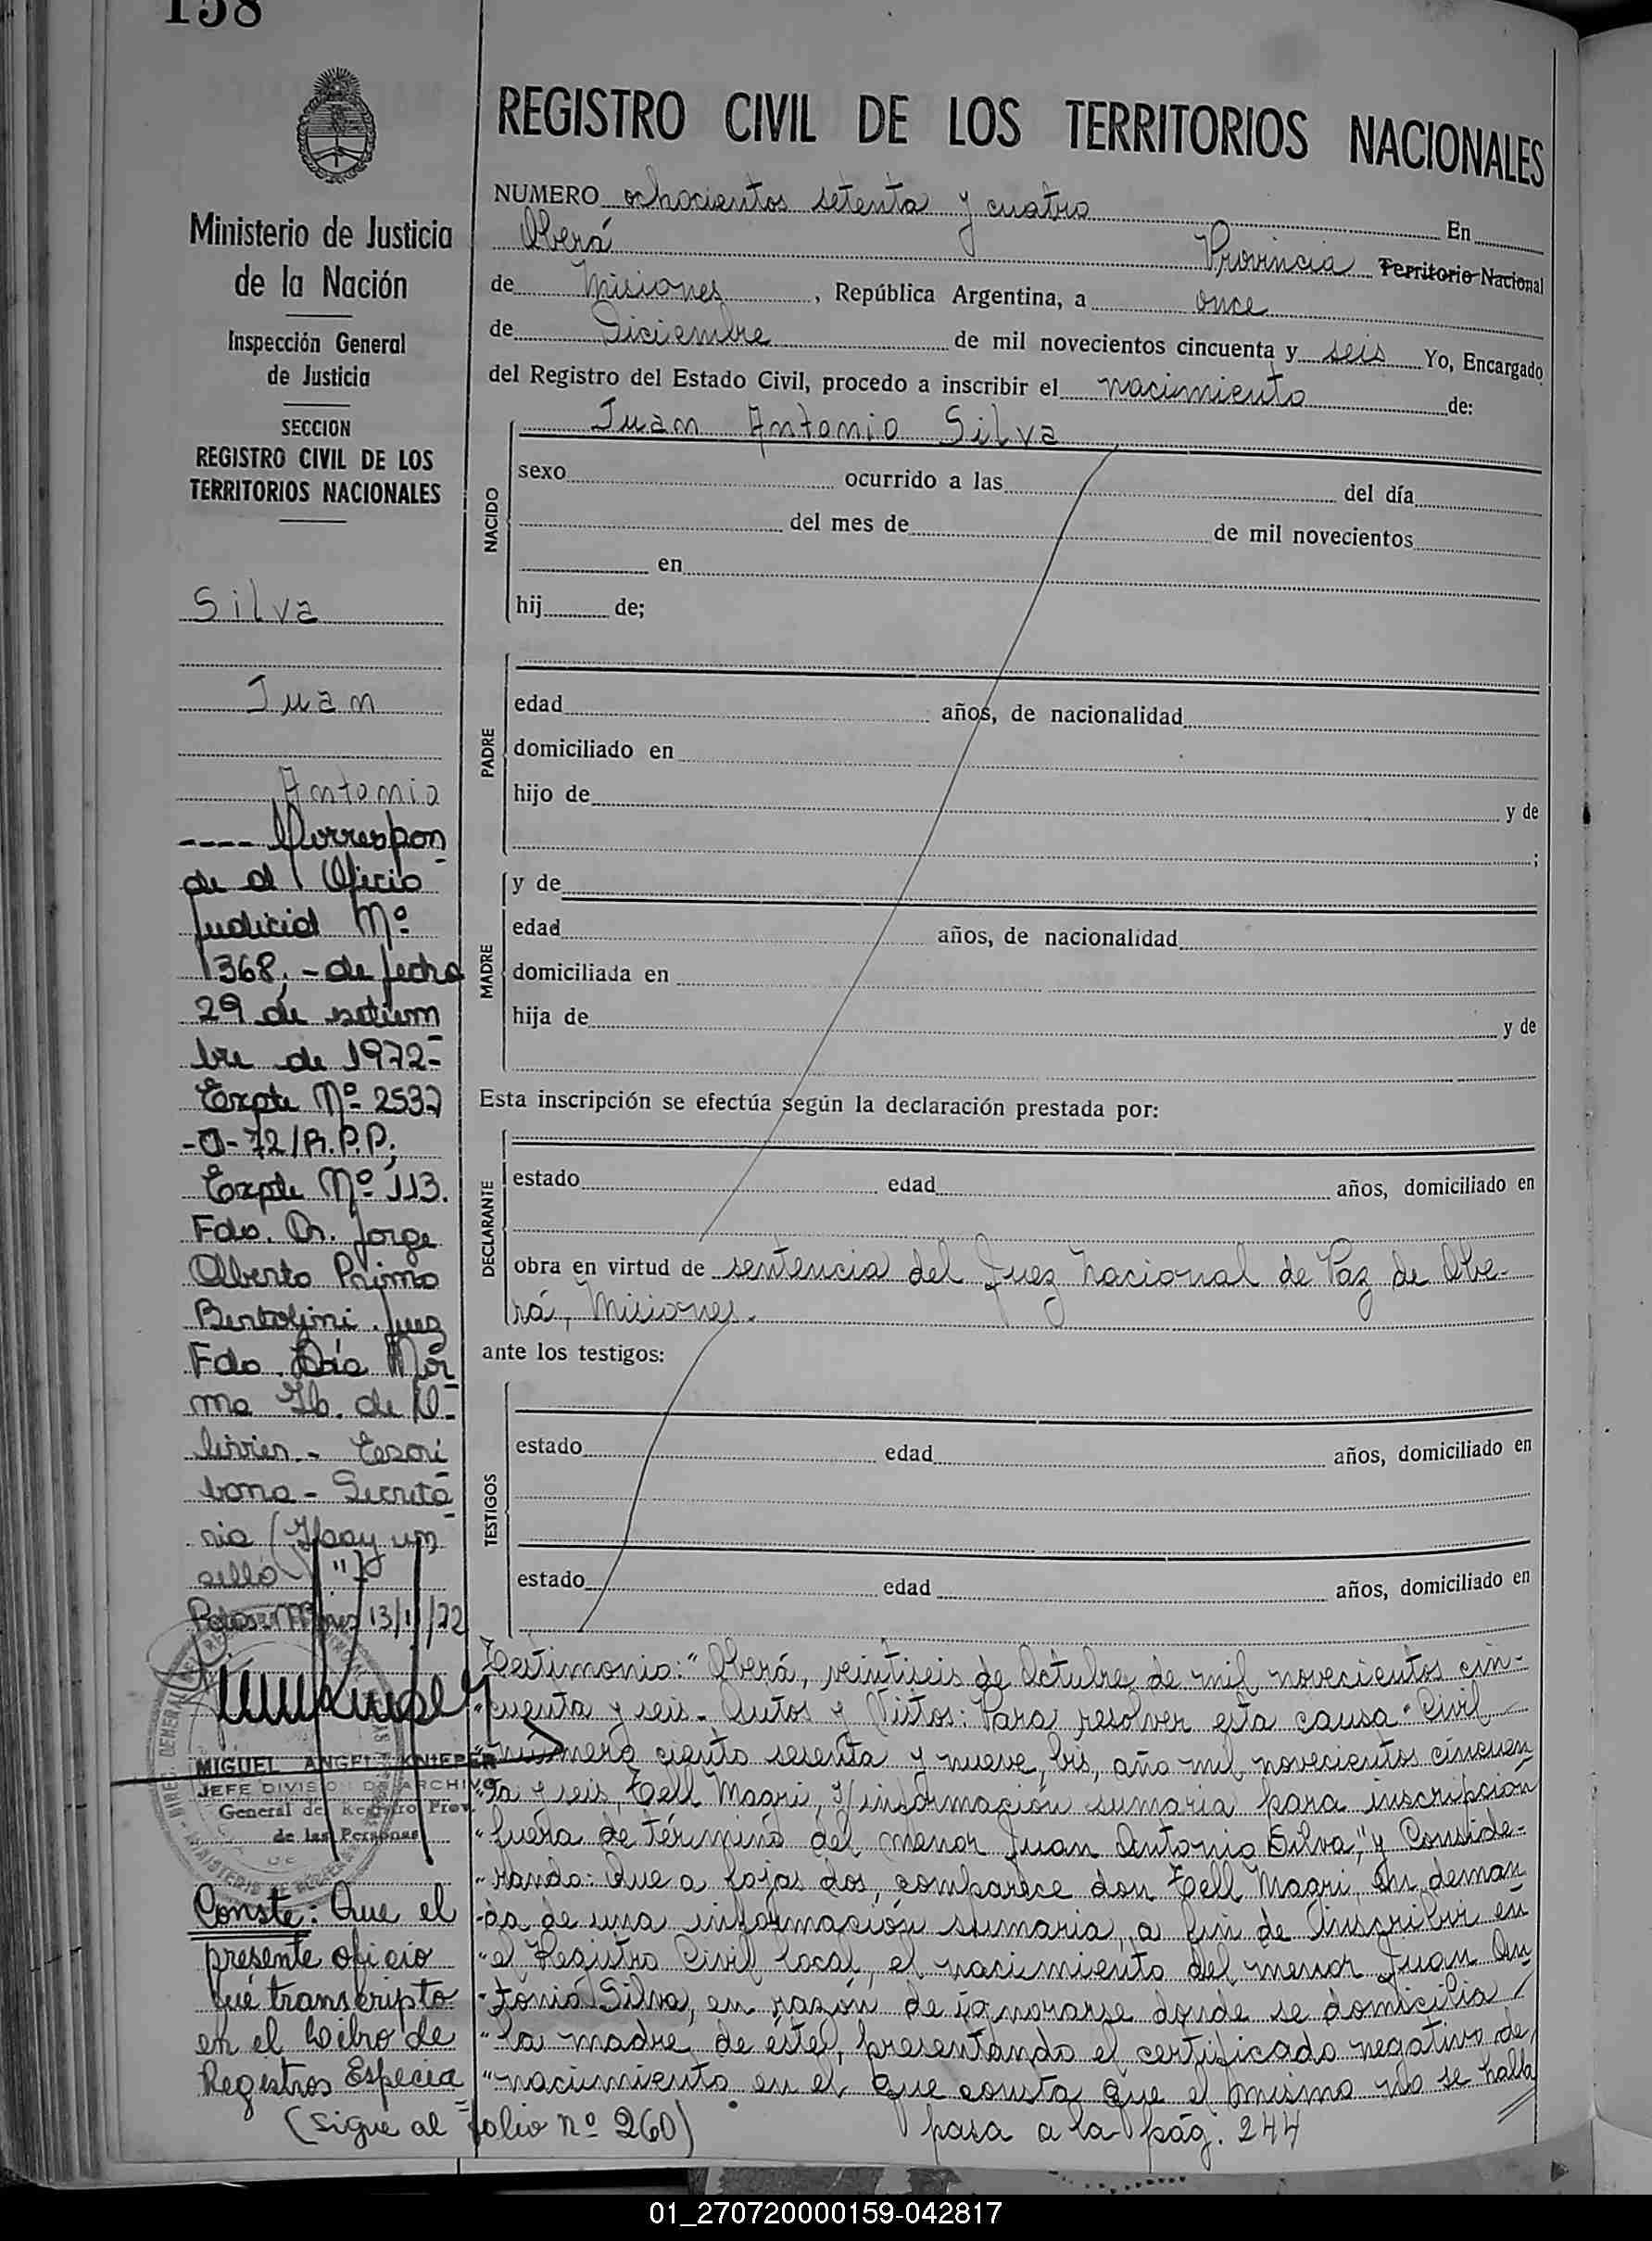 158
REGISTRO CIVIL DE LOS TERRITORIOS NACIONALES
Ministerio de Justicia
de la Nación
Inspección General
de Justicia
SECCION
REGISTRO CIVIL DE LOS
TERRITORIOS NACIONALES
Silva
Juan
Antonio
---- Correspon
de al Oficio
Judicial Nº
1368,- de fecha
29 de setiem
bre de 1972-
Expte Nº 2537
72/R.P.P;
Expte Nº 113.
Fdo. Dr. Jorge
Alberto Primo
Bertolini. Juez
Fdo. Nor
ma de
Escri
bana - Secreta
ria (Hay un
sello)
13/11/72
MIGUEL ANGEL KNIEPER
JEFE DIVISION DE ARCHIVO
General del Registro Prov.
de las Personas
Conste: Que el
presente oficio
fué transcripto
en el Libro de
Registros Especia
(Sigue al folio nº 260)
NUMERO ochocientos setenta y cuatro En
Oberá Provincia Territorio Nacional
de Misiones, República Argentina, a once
de Diciembre de mil novecientos cincuenta y seis Yo, Encargado
del Registro del Estado Civil, procedo a inscribir el nacimiento de:
NACIDO
Juan Antonio Silva
sexo ocurrido a las del día
del mes de de mil novecientos
en
hij de;
PADRE
edad años, de nacionalidad
domiciliado en
hijo de y de
;
MADRE
y de
edad años, de nacionalidad
domiciliada en
hija de y de
Esta inscripción se efectúa según la declaración prestada por:
DECLARANTE
estado edad años, domiciliado en
obra en virtud de sentencia del Juez Nacional de Paz de Obe-
rá, Misiones.
ante los testigos:
TESTIGOS
estado edad años, domiciliado en
estado edad años, domiciliado en
Testimonio: "Oberá, veintiseis de Octubre de mil novecientos cin-
"cuenta y seis.- Autos y Vistos: Para resolver esta causa Civil
"número ciento sesenta y nueve, bis, año mil novecientos cincuen
"ta y seis, Tell Magri, s/información sumaria para inscripción
"fuera de término del menor Juan Antonio Silva," y Conside-
"rando: Que a fojas dos, comparece don Tell Magri, en deman
"da de una información sumaria, a fin de inscribir en
"el Registro Civil local, el nacimiento del menor Juan An
"tonio Silva, en razón de ignorarse donde se domicilia
"la madre de éste, presentando el certificado negativo de
"nacimiento en el que consta que el mismo no se halla
pasa a la pág. 244
01_270720000159-042817